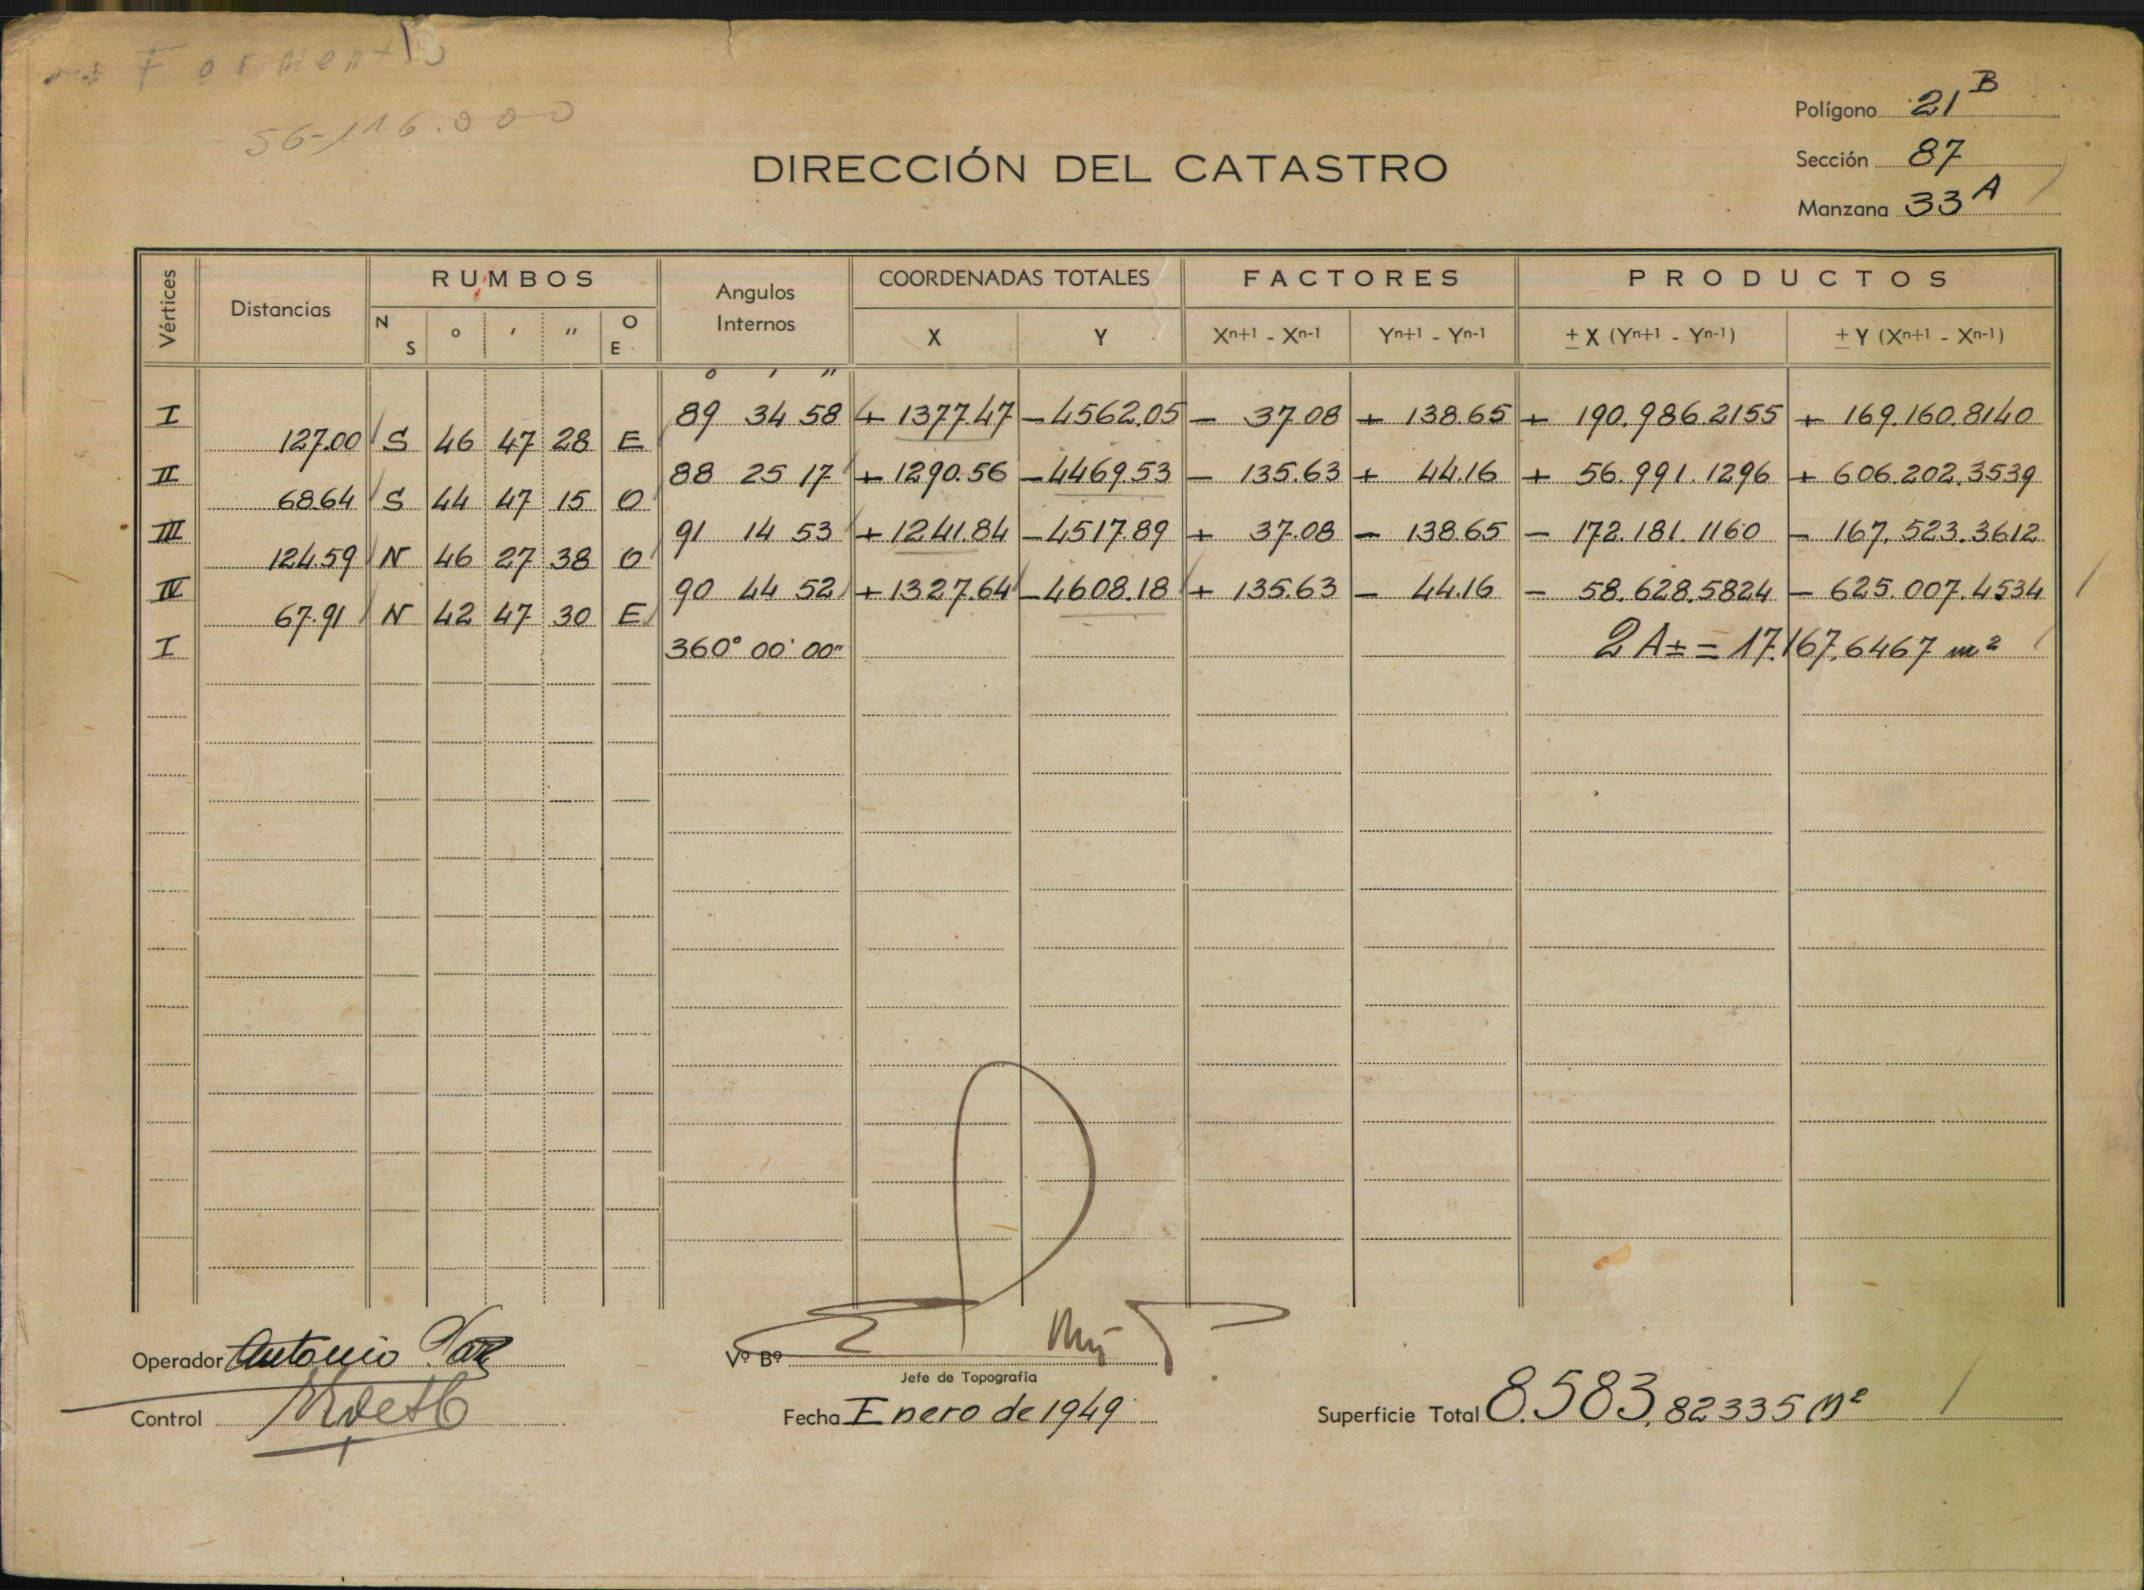 Formento
56-116.000
Polígono 21 B
Sección 87
Manzana 33 A
DIRECCIÓN DEL CATASTRO
Vértices Distancias RUMBOS Angulos Internos COORDENADAS TOTALES FACTORES PRODUCTOS
N S o ' " O E X Y Xn+1 - Xn-1 Yn+1 - Yn-1 ± X (Yn+1 - Yn-1) ± Y (Xn+1 - Xn-1)
o ' "
I 89 34 58 + 1377.47 - 4562.05 - 37.08 + 138.65 + 190.986.2155 + 169.160.8140
127.00 S 46 47 28 E
II 88 25 17 + 1290.56 - 4469.53 - 135.63 + 44.16 + 56.991.1296 + 606.202.3539
68.64 S 44 47 15 O
III 91 14 53 + 1241.84 - 4517.89 + 37.08 - 138.65 - 172.181.1160 - 167.523.3612
124.59 N 46 27 38 O
IV 90 44 52 + 1327.64 - 4608.18 + 135.63 - 44.16 - 58.628.5824 - 625.007.4534
67.91 N 42 47 30 E
I 360° 00' 00" 2 A ± = 17.167.6467 m2
Operador Antonio Paz
Vº Bº
Jefe de Topografía
Control
Fecha Enero de 1949
Superficie Total 8.583,82335 M2